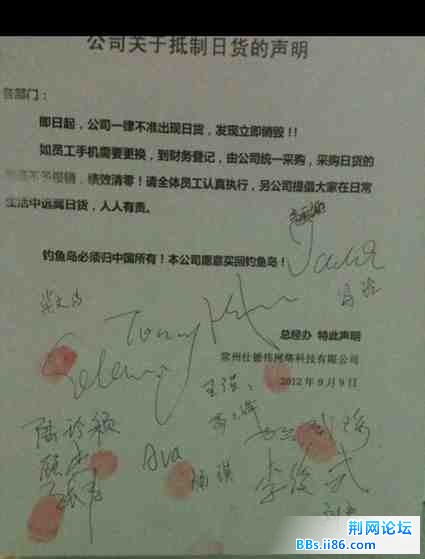 公司关于抵制日货的声明
各部门：
即日起，公司一律不准出现日货，发现立即销毁！！
如员工手机需要更换，到财务登记，由公司统一采购，采购日货的
不予报销，绩效清零！请全体员工认真执行，另公司提倡大家在日常
生活中远离日货，人人有责。
钓鱼岛必须归中国所有！本公司愿意买回钓鱼岛！
总经办 特此声明
常州仕德伟网络科技有限公司
2012年9月9日
Tommy
Selena
王强
陆珍颖
Ava
杨琪
李俊武
荆网论坛
BBs.ii86.com